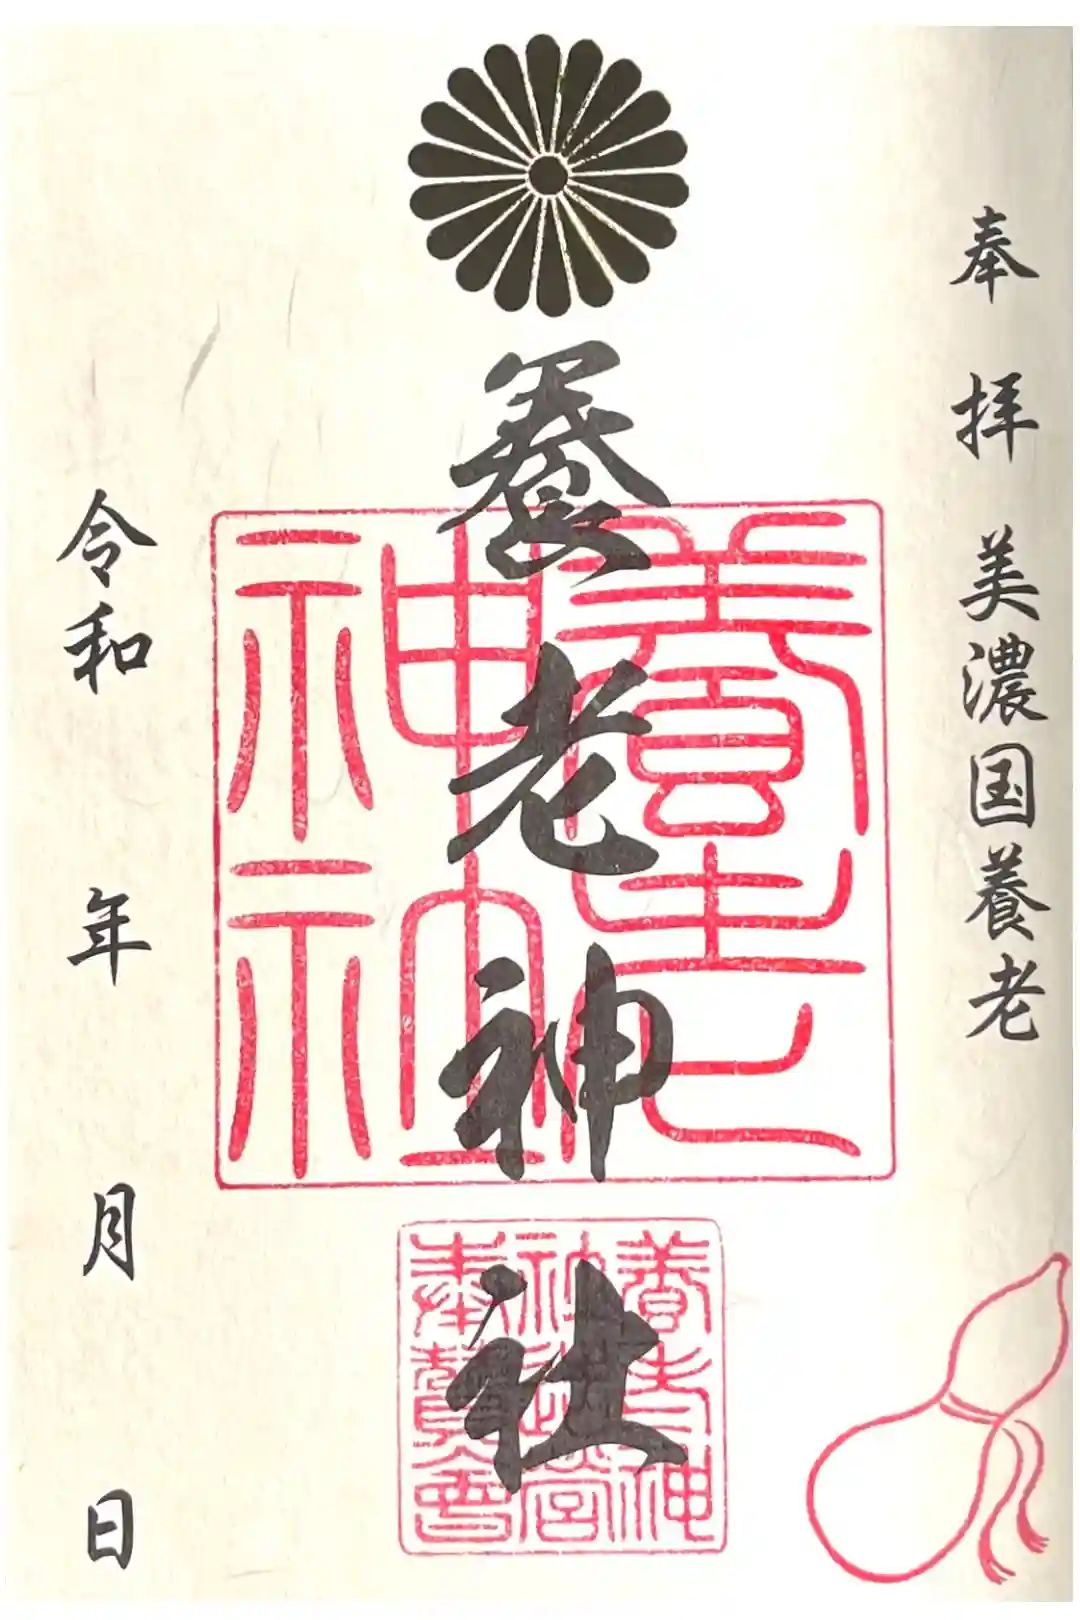 奉拝 美濃国養老
養老神社
養老神社
養老神
社造営
奉賛會
令和 年 月 日